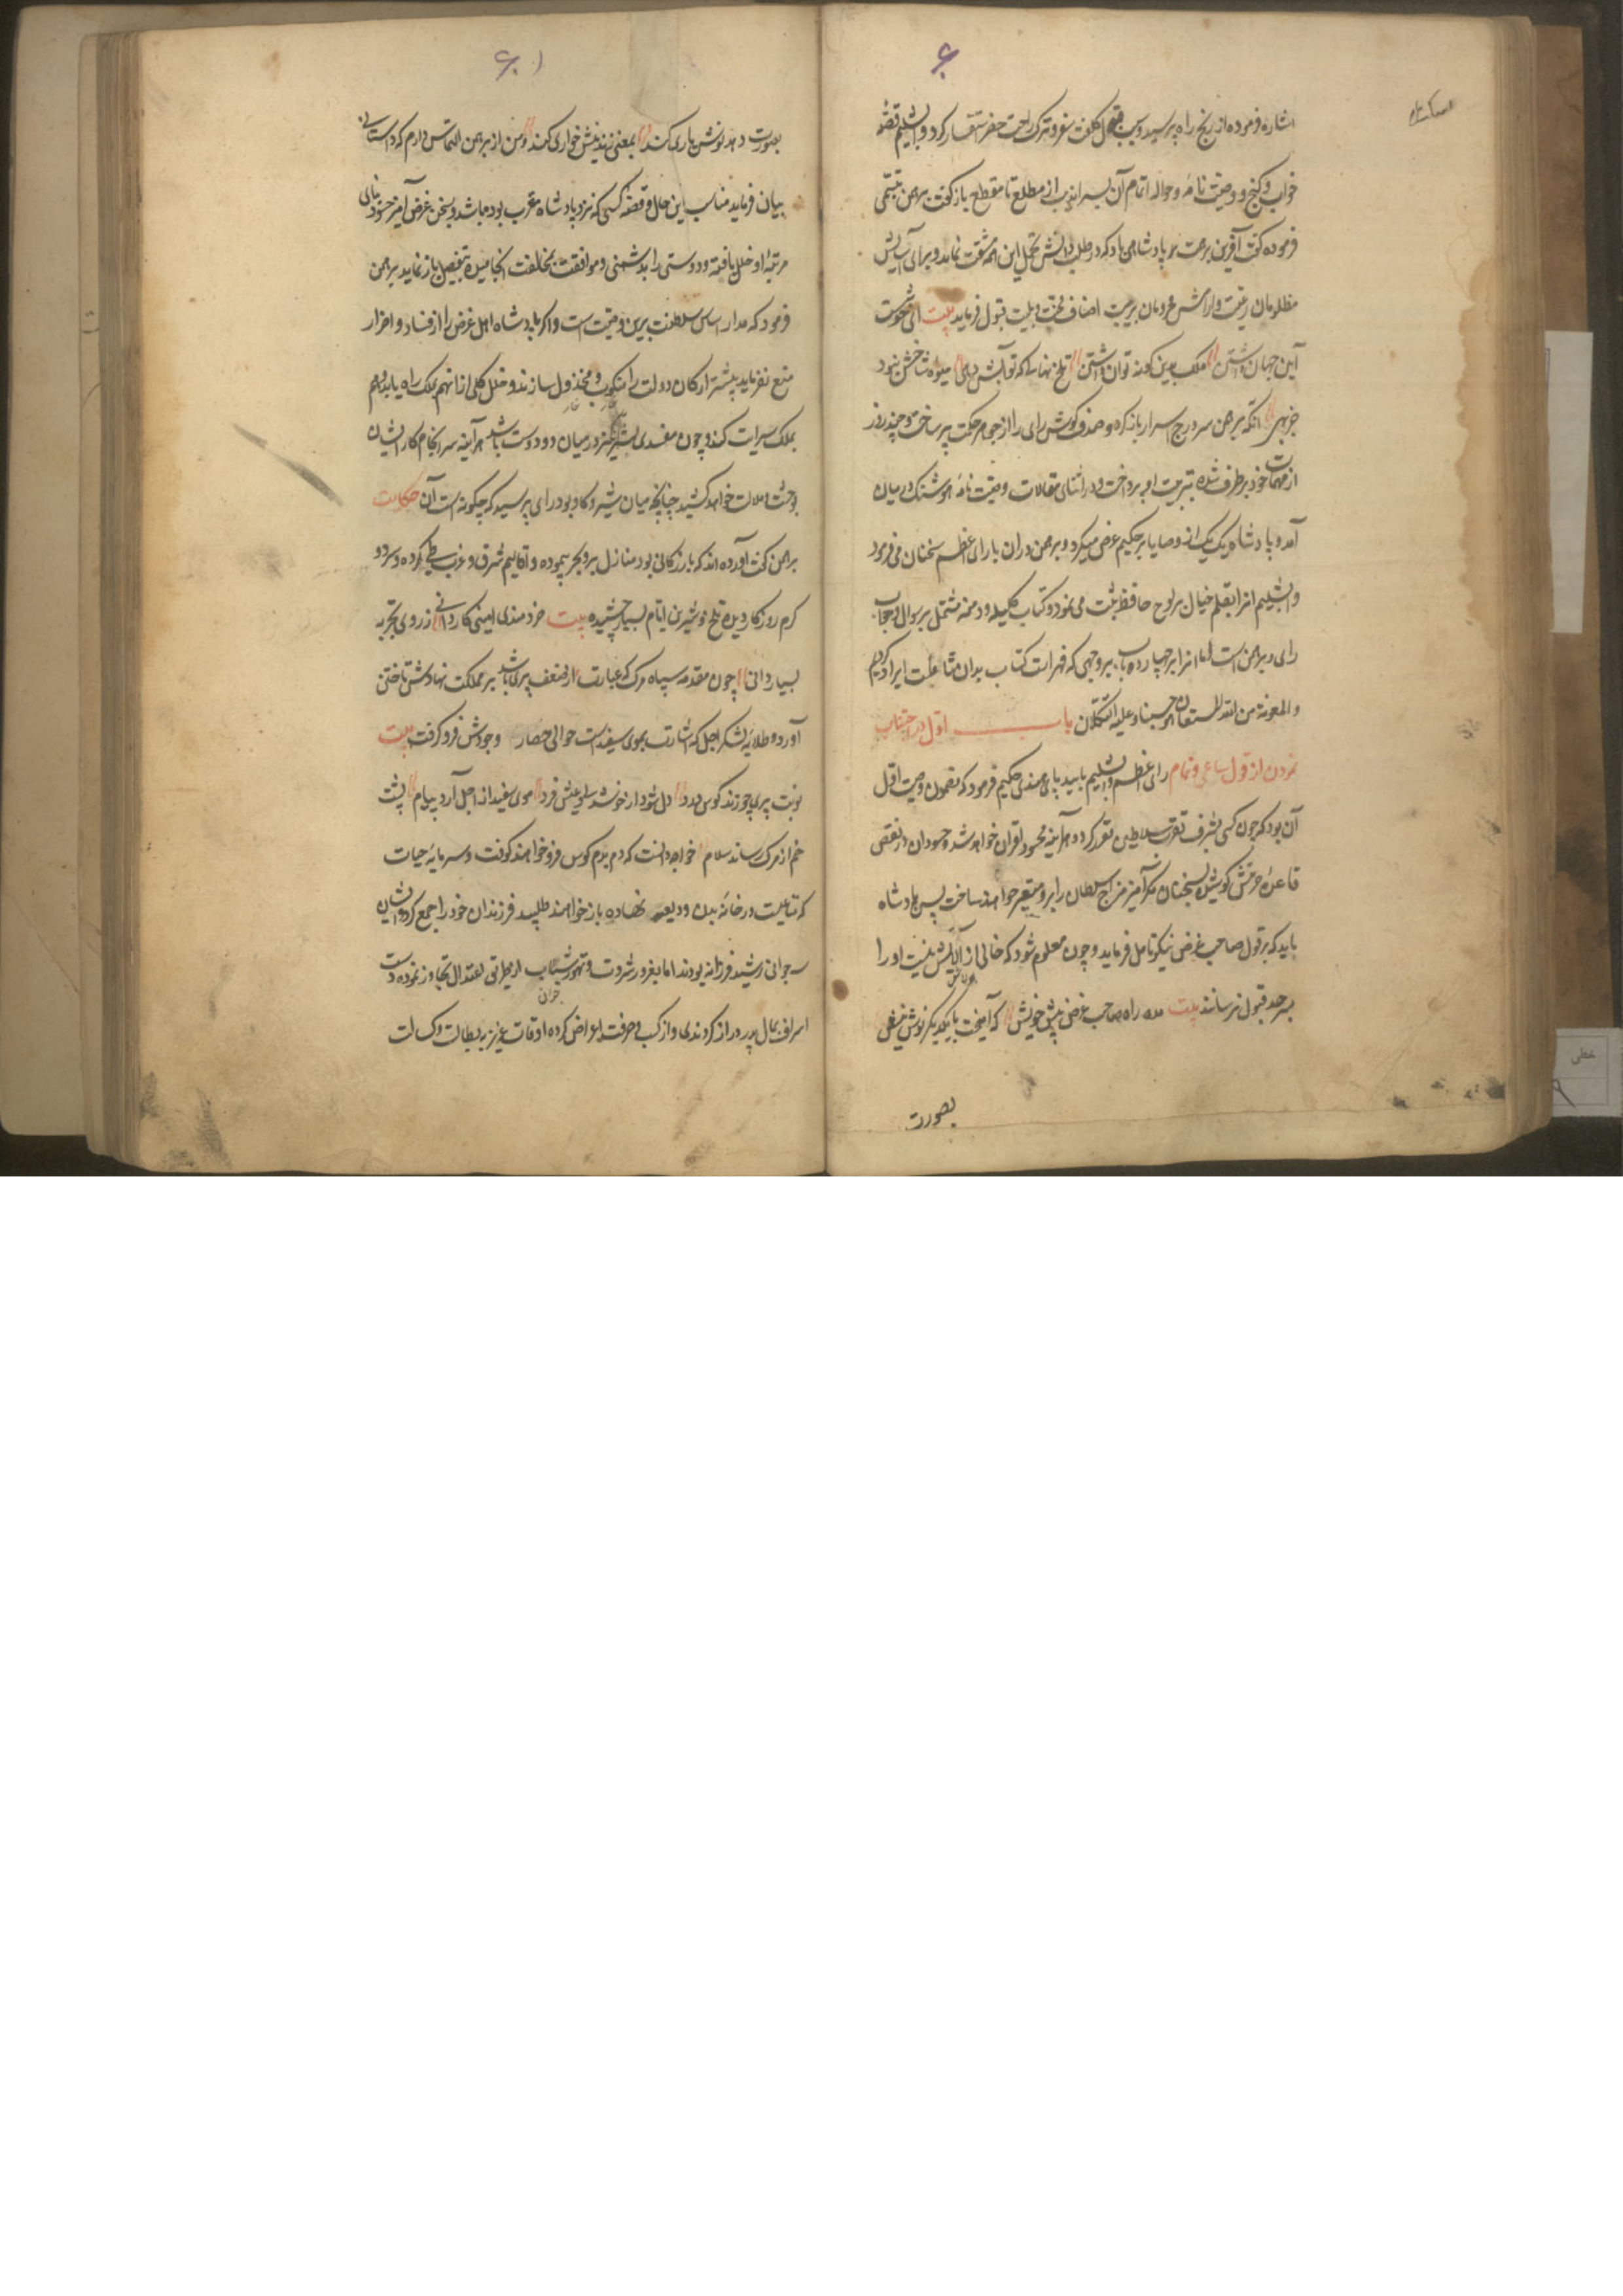 ۶۰
اشاره فرموده از رنج راه پرسید و سبب تحمل کلفت سفر و ترک راحت حضر استفسار کرد و دابشلیم قصه
خواب و گنج و وصیت نامه و حواله اتمام آن بسراندیب از مطلع تا مقطع بازگفت برهمن تبسمی
فرموده گفت آفرین بر همت پادشاهی باد که در طلب دانش تحمل این همه مشقت نماید و برای آسایش
مظلومان رعیت و آرامش محرومان بریت اصناف محنت و بلیت قبول فرماید بیت ای خوست
آیین جهان داشتن ملک بدین گونه توان داشتن بیخ نهالی را که تو آبش دهی میوه شاخش نبود
جز بهی آنگه برهمن سر درج اسرار باز کرده صدف گوش رای را از جواهر حکمت پر ساخت و چند روز
از مهمات خود برطرف شده بتربیت او پرداخت و در اثنای مقالات وصیت نامه هوشنگ در میان
آمد و پادشاه یک یک از وصایا بر حکیم عرض میکرد و برهمن در آن با رای اعظم سخنان می فرمود
و دابشلیم آنرا بقلم خیال بر لوح حافظه ثبت می نمود و کتاب کلیله و دمنه مشتمل بر سوال و جواب
رای و برهمن است اما آنرا بر چهارده باب بر وجهی که فهرست کتاب بدان مشتملست ایراد کردیم
والمعونة من الله المستعان هو حسبنا و علیه التکلان باب اول در اجتناب
نمودن از قول ساعی و نمام رای اعظم دابشلیم با بیدپای هندی حکیم فرمود که مضمون وصیت اول
آن بود که چون کسی بشرف تقرب سلاطین مقرر گردد هرآینه محسود اقران خواهد شد و حسودان در نقض
قاعده حرمتش کوشیده بسخنان مکرآمیز مزاج سلطان را برو متغیر خواهند ساخت پس پادشاه
باید که بر قول صاحب غرض نیکو تامل فرماید و چون معلوم شود که خالی از آلایش نیست او را
بسرحد قبول نرساند بیت مده راه صاحب غرض پیش خویش که آمیخت با یکدیگر نوش نیش
بصورت
۶۰۱
بصورت دهد نوش یاری کند بمعنی زند نیش خواری کند و من از برهمن التماس دارم که داستانی
بیان فرماید مناسب این حال و قصه کسی که نزد پادشاه مقرب بوده باشد و بسخن غرض آمیز حسود بنای
مرتبه او خلل یافته و دوستی را بدشمنی و موافقت بمخالفت انجامیده بتفصیل باز نماید برهمن
فرمود که مدار اساس سلطنت برین وصیت است و اگر پادشاه اهل غرض را از فساد و اضرار
منع نفرماید بیشتر ارکان دولت را منکوب و مخذول سازند و خلل کلی از آن هم بملک راه یابد و هم
بملک سرایت کند و چون مفسدی شریر در میان دو دوست باشد هرآینه سرانجام کار ایشان
بوحشت و ملالت خواهد کشید چنانچه میان شیر و گاو بود رای پرسید که چگونه است آن حکایت
برهمن گفت آورده اند که بازرگانی بود منازل بر و بحر پیموده و اقالیم شرق و غرب طی کرده و سرد و
گرم روزگار دیده تلخ و شیرین ایام بسیار چشیده بیت خردمندی امینی کاردانی ز روی تجربه
بسیار دانی چون مقدمه سپاه مرگ که عبارت از ضعف پیری باشد بر مملکت نهادش تاختن
آورد و طلایه لشکر اجل که اشارت بموی سفید است حوالی حصار وجودش فرو گرفت بیت
نوبت پیری چو زند کوس درد دل شود از خوشدلی و عیش فرد موی سفید از اجل آرد پیام پشت
خم از مرگ رساند سلام خواجه دانست که دم بدم کوس فرو خواهند کوفت و سرمایه حیات
که متاعیست در خانه بدن ودیعه نهاده باز خواهند طلبید فرزندان خود را جمع کرد و ایشان
سه جوانی رشید فرزانه بودند اما بغرور ثروت و تهور شباب از طریق اعتدال تجاوز نموده دست
اسراف بمال پدر دراز کردندی و از کسب و حرفت اعراض کرده اوقات عزیز به بطالت و کسالت